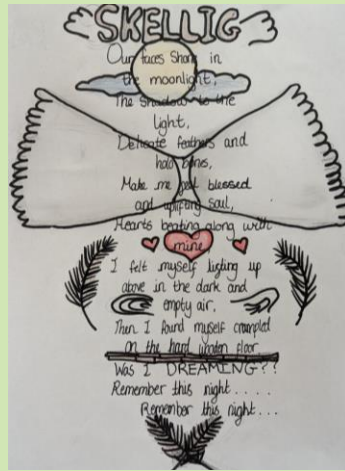 SKELLIG
Our faces Shone in
the moonlight,
The Shadow to the
light,
Delicate feathers and
halo bones,
Make me feel blessed
and uplifting soul,
Hearts beating along with
mine
I felt myself listing up
above in the dark and
empty air,
Then I found myself crumpled
on the hard wooden floor
Was I DREAMING??
Remember this night....
Remember this night...